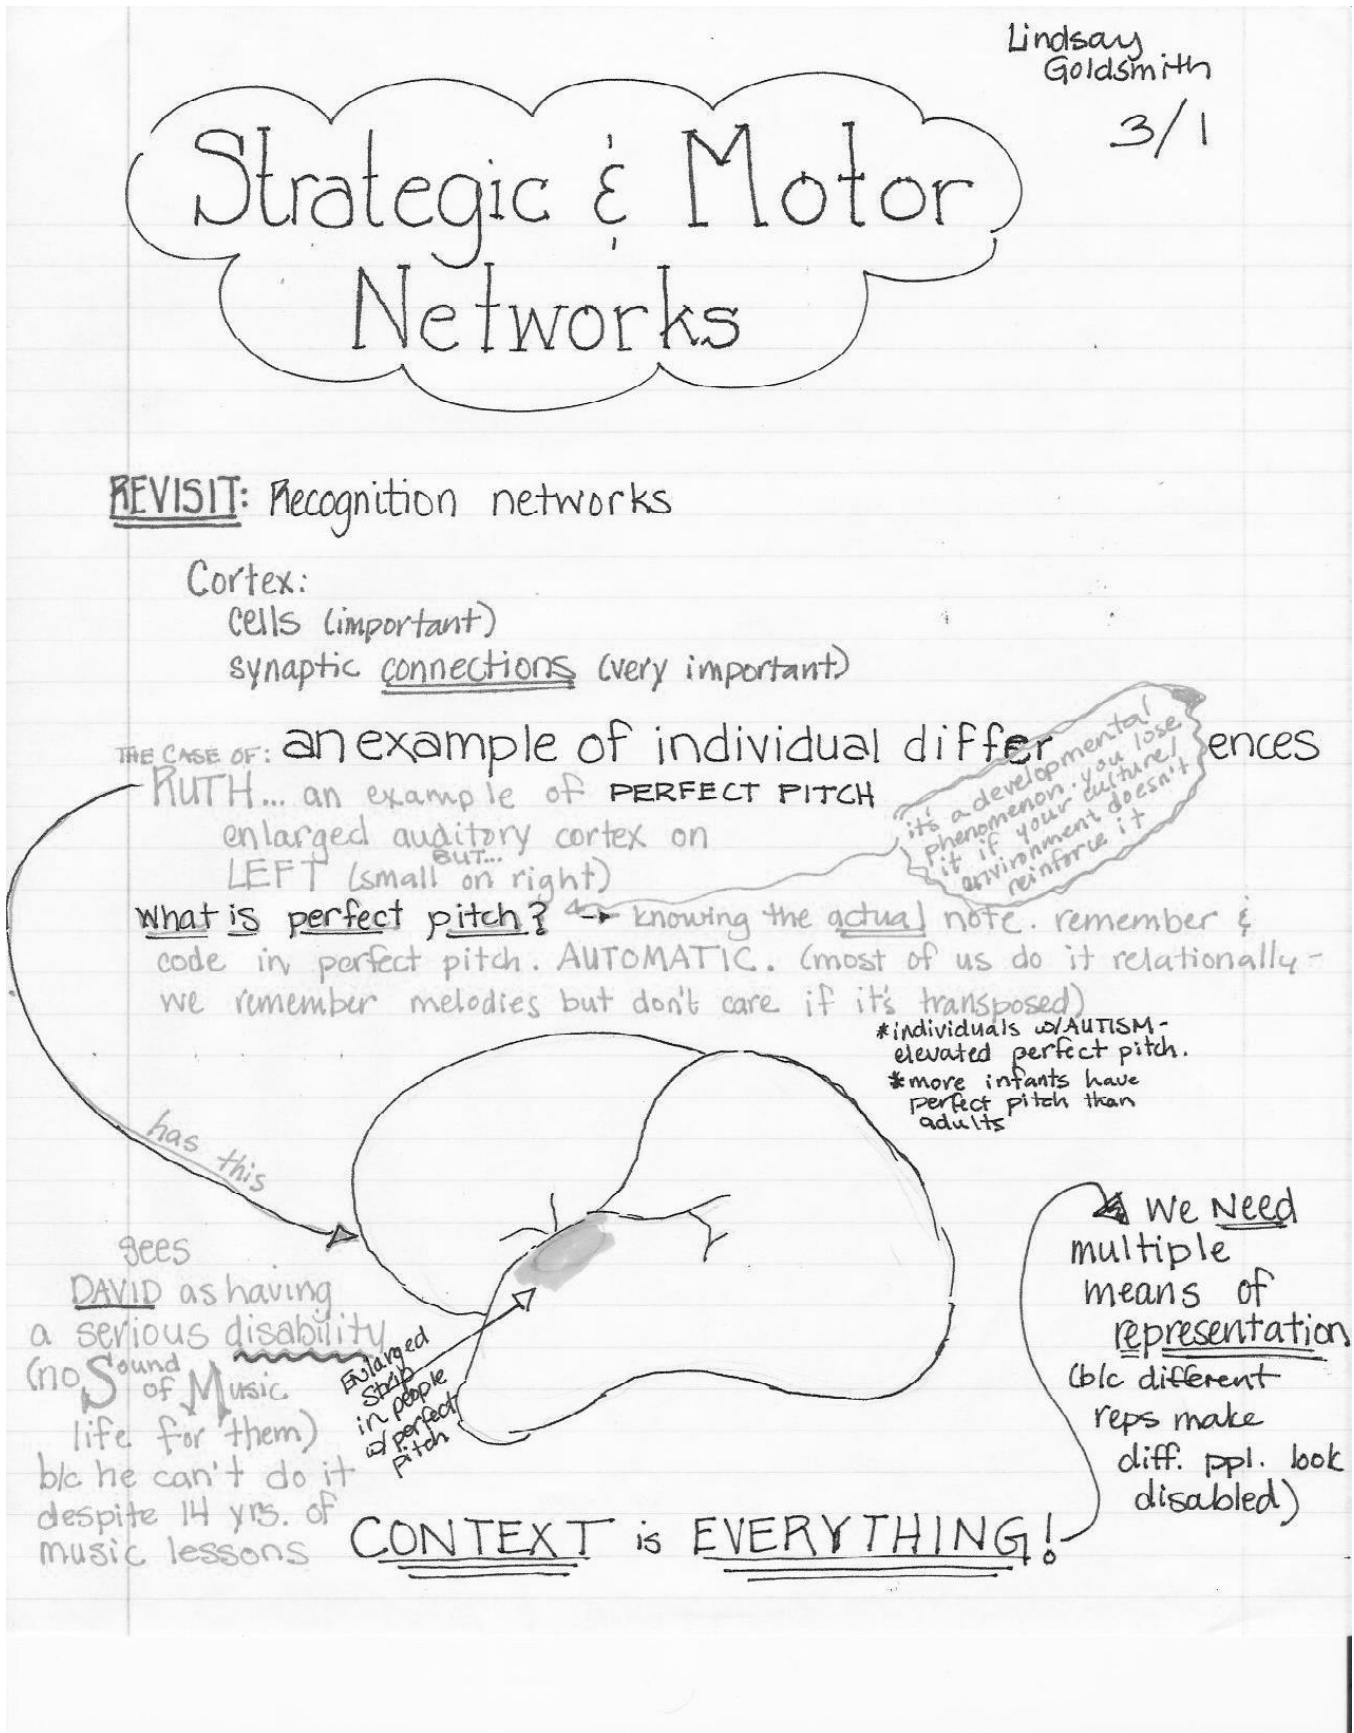 Lindsay
Goldsmith
3/1
Strategic & Motor
Networks
REVISIT: Recognition networks
Cortex:
cells (important)
synaptic connections (very important)
THE CASE OF: an example of individual differences
RUTH... an example of PERFECT PITCH
enlarged auditory cortex on
BUT...
LEFT (small on right)
it's a developmental
phenomenon. you lose
it if your culture/
environment doesn't
reinforce it
What is perfect pitch? → knowing the actual note. remember &
code in perfect pitch. AUTOMATIC. (most of us do it relationally -
we remember melodies but don't care if it's transposed)
*individuals w/AUTISM-
elevated perfect pitch.
*more infants have
perfect pitch than
adults
has this
sees
DAVID as having
a serious disability
(no Sound
of Music
life for them)
b/c he can't do it
despite 14 yrs. of
music lessons
Enlarged
strip
in people
w/ perfect
pitch
We Need
multiple
means of
representation
(b/c different
reps make
diff. ppl. look
disabled)
CONTEXT is EVERYTHING!